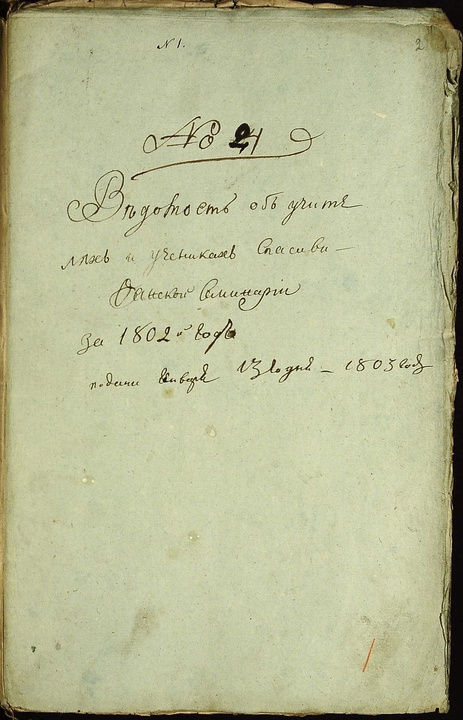 N 1.
2
№ 21
Вѣдомость объ учите
ляхъ и ученикахъ Спасови-
фанской Семинаріи
за 1802й годъ
подана Января 13го дня - 1803 года